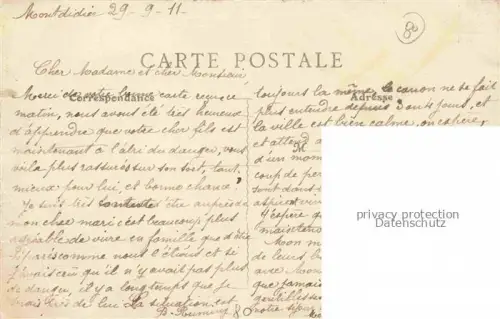 Montdidier 29-9-11-
80
CARTE POSTALE
Cher Madame et cher Monsieur
Correspondance
Adresse
Merci de votre bonne carte reçue ce
matin, nous avons été très heureux
d'apprendre que votre cher fils est
maintenant à l'abri du danger, vous
voilà plus rassurés sur son sort, tant
mieux pour lui, et bonne chance!
Je suis très contente d'être auprès de
mon cher mari c'est beaucoup plus
agréable de vivre en famille que d'être
comme nous l'étions et si
j'avais cru qu'il n'y avait pas plus
de danger, il y a longtemps que je
près de lui La situation est
80
toujours la même le canon ne se fait
plus entendre depuis 3 ou 4 jours, et
la ville est bien calme, on espère,
et attend
M
d'un mom
coup de per
sont dans
J'espère que
maintenant
Mon m
de leurs b
avec Mon
que jamais
gentilles
notre
privacy protection
Datenschutz